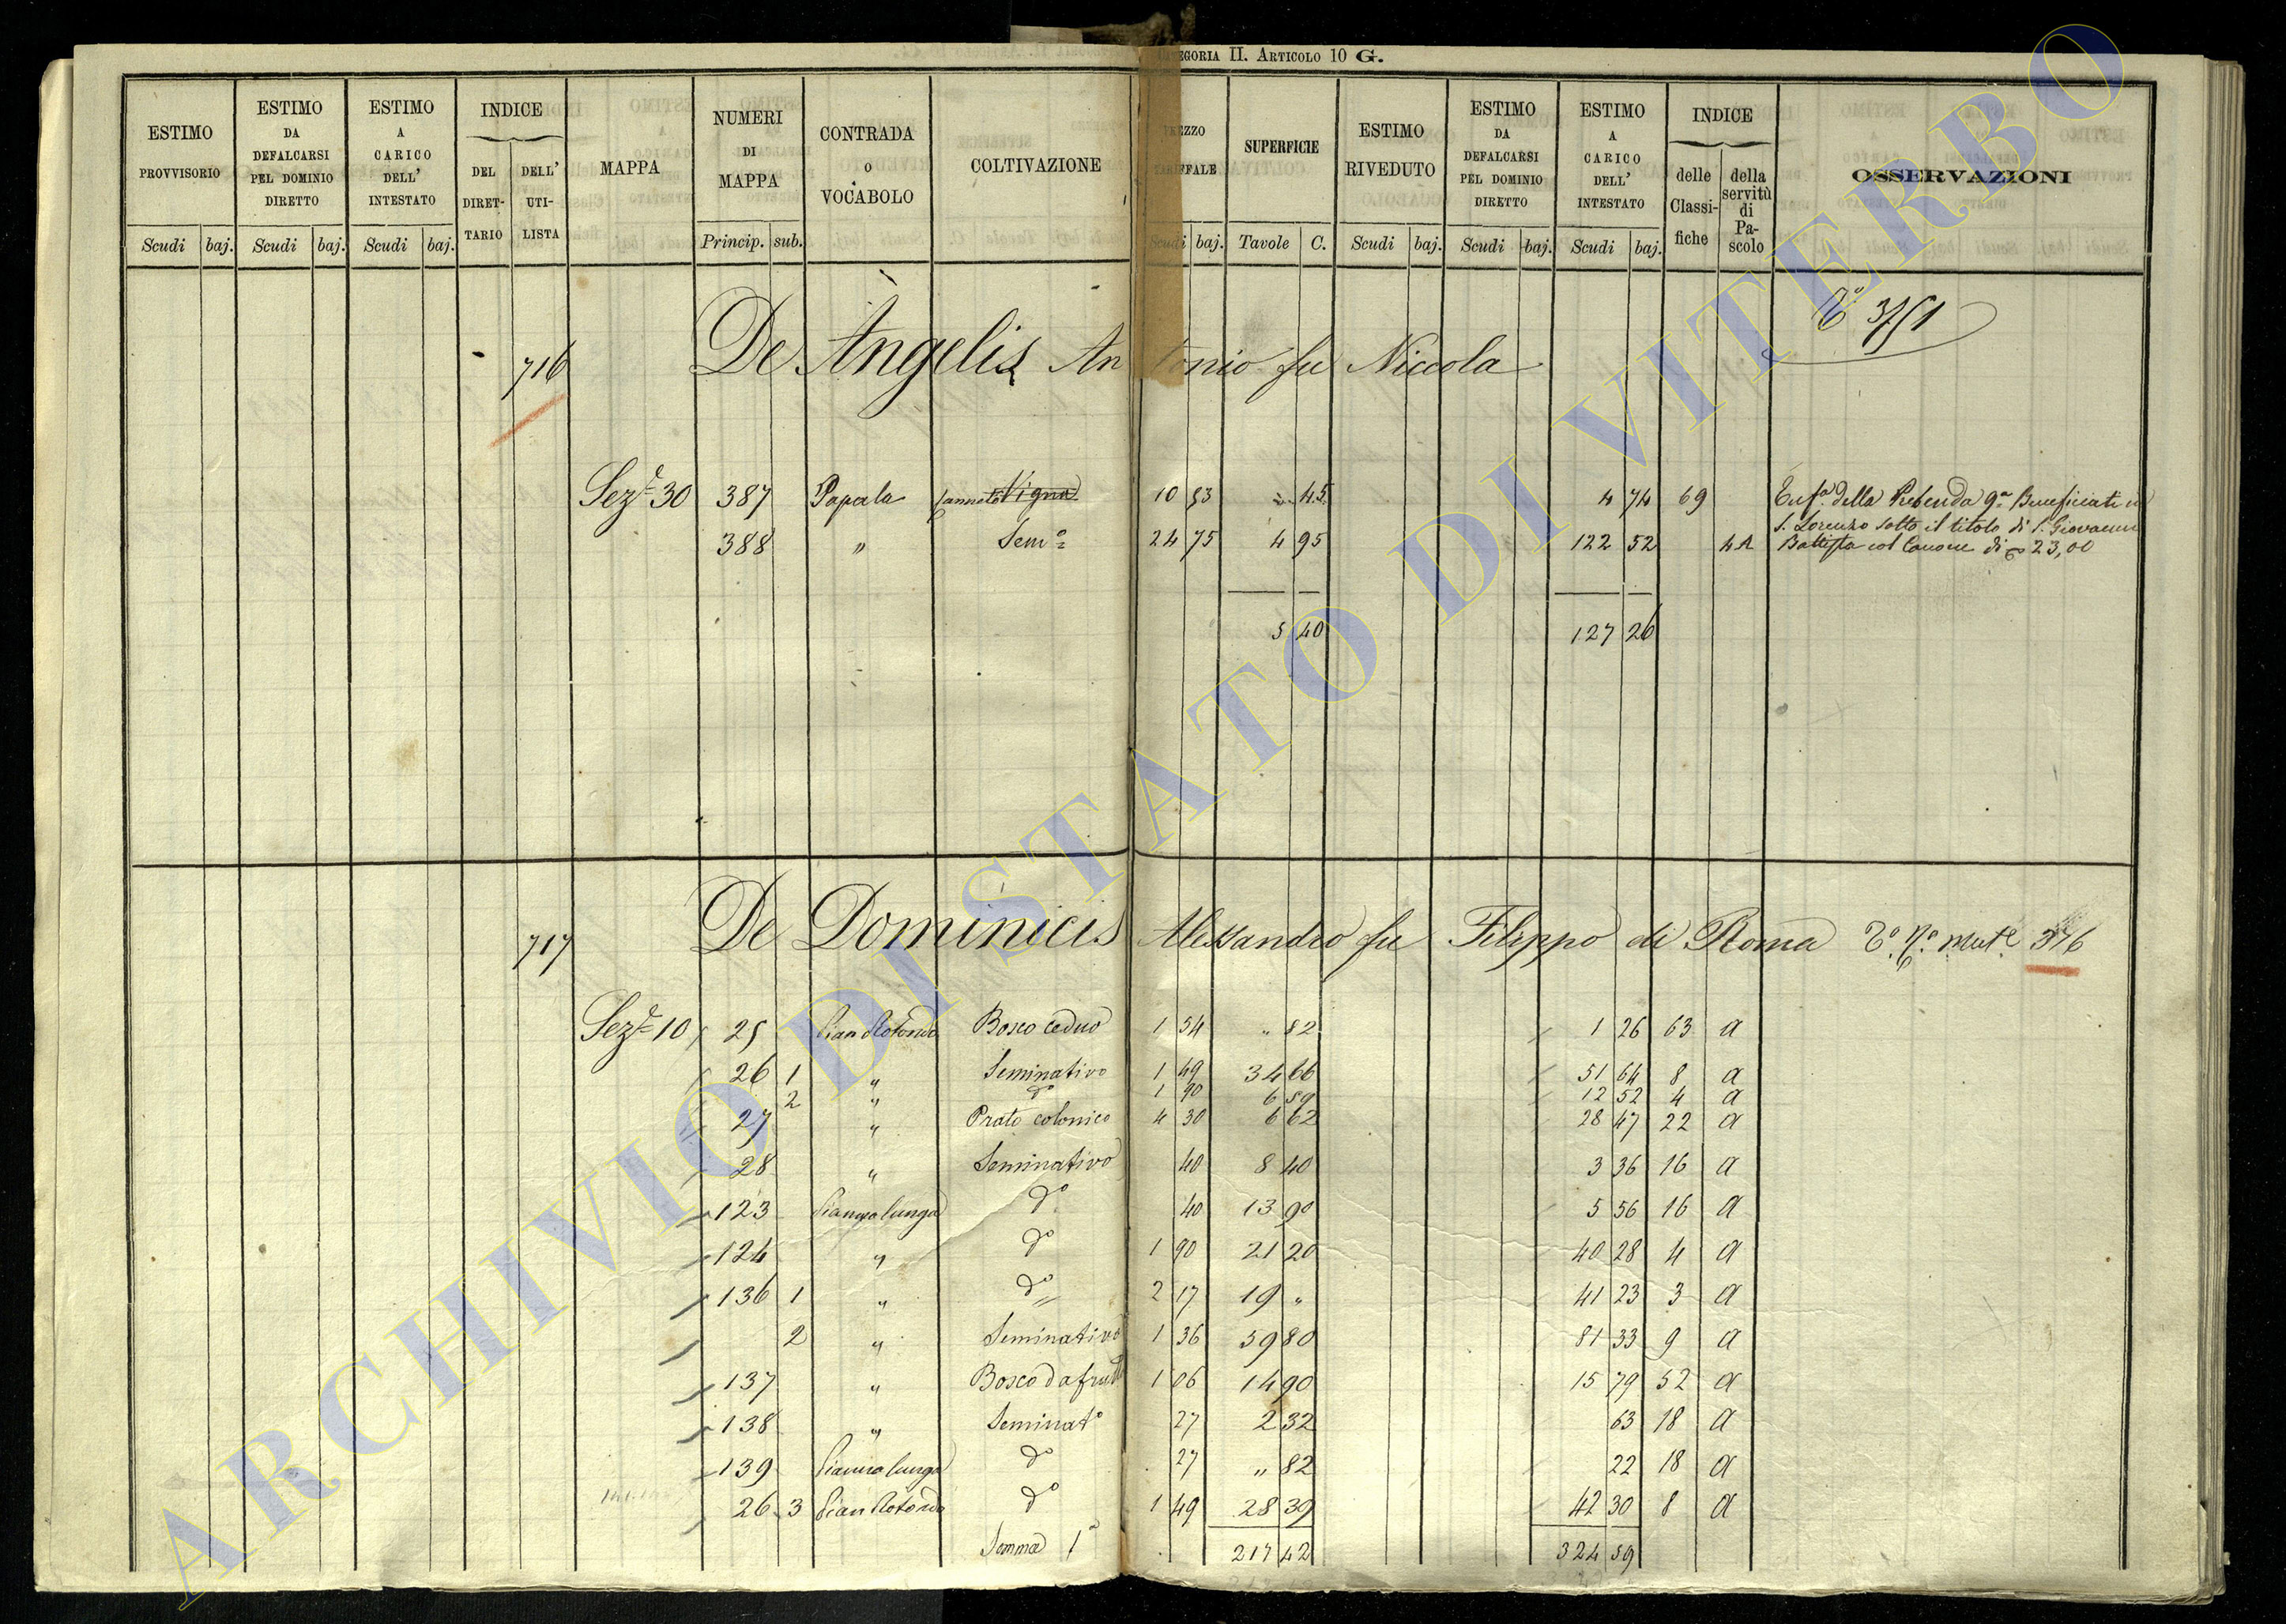 CATEGORIA II. ARTICOLO 10 G.
ESTIMO PROVVISORIO Scudi baj.
ESTIMO DA DEFALCARSI PEL DOMINIO DIRETTO Scudi baj.
ESTIMO A CARICO DELL' INTESTATO Scudi baj.
INDICE DEL DIRETTARIO DELL' UTILISTA
MAPPA
NUMERI DI MAPPA Princip. sub.
CONTRADA O VOCABOLO
COLTIVAZIONE
PREZZO TARIFFALE Scudi baj.
SUPERFICIE Tavole C.
ESTIMO RIVEDUTO Scudi baj.
ESTIMO DA DEFALCARSI PEL DOMINIO DIRETTO Scudi baj.
ESTIMO A CARICO DELL' INTESTATO Scudi baj.
INDICE delle Classifiche della servitù di Pascolo
OSSERVAZIONI
716 De Angelis Antonio fu Niccola
Sez.e 30 387 Papala Canneto Vigna 10 83 " 45 4 74 69 Enf.a della Prebenda 9a Beneficiati in
S. Lorenzo sotto il titolo di S. Giovanni
388 " Sem.o 24 75 4 95 122 52 4 A Battista col Canone di 23,00
5 40 127 26
717 De Dominicis Alessandro fu Filippo di Roma 376
Sez.e 10 25 Pian Rotondo Bosco ceduo 1 54 " 82 1 26 63 a
26 1 " Seminativo 1 49 34 66 51 64 8 a
2 " do 1 90 6 59 12 52 4 a
27 " Prato colonico 4 30 6 62 28 47 22 a
28 " Seminativo 40 8 40 3 36 16 a
123 Piannalunga do 40 13 90 5 56 16 a
124 " do 1 90 21 20 40 28 4 a
136 1 " do 2 17 19 " 41 23 3 a
2 " Seminativo 1 36 59 80 81 33 9 a
137 " Bosco da frutto 1 06 14 90 15 79 52 a
138 " Seminato 27 2 32 63 18 a
139 Piannalunga do 27 " 82 22 18 a
26 3 Pian Rotondo do 1 49 28 39 42 30 8 a
Somma 1a 217 42 324 59
ARCHIVIO DI STATO DI VITERBO